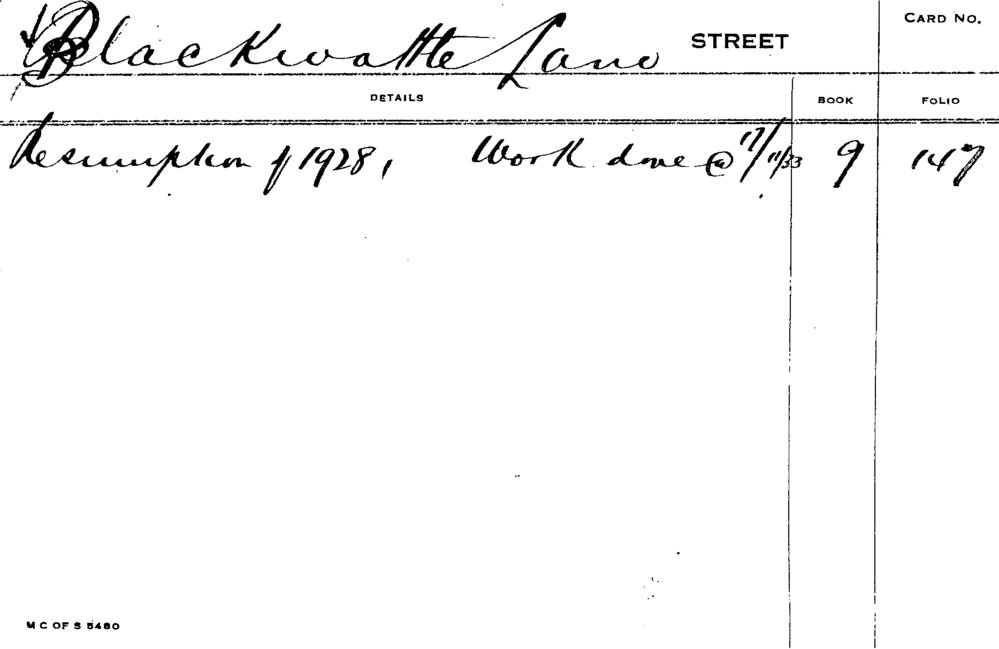 Blackwattle Lane STREET CARD NO.
DETAILS BOOK FOLIO
Resumption of 1928, Work done @ 17/11/33 9 147
M C OF S 5480